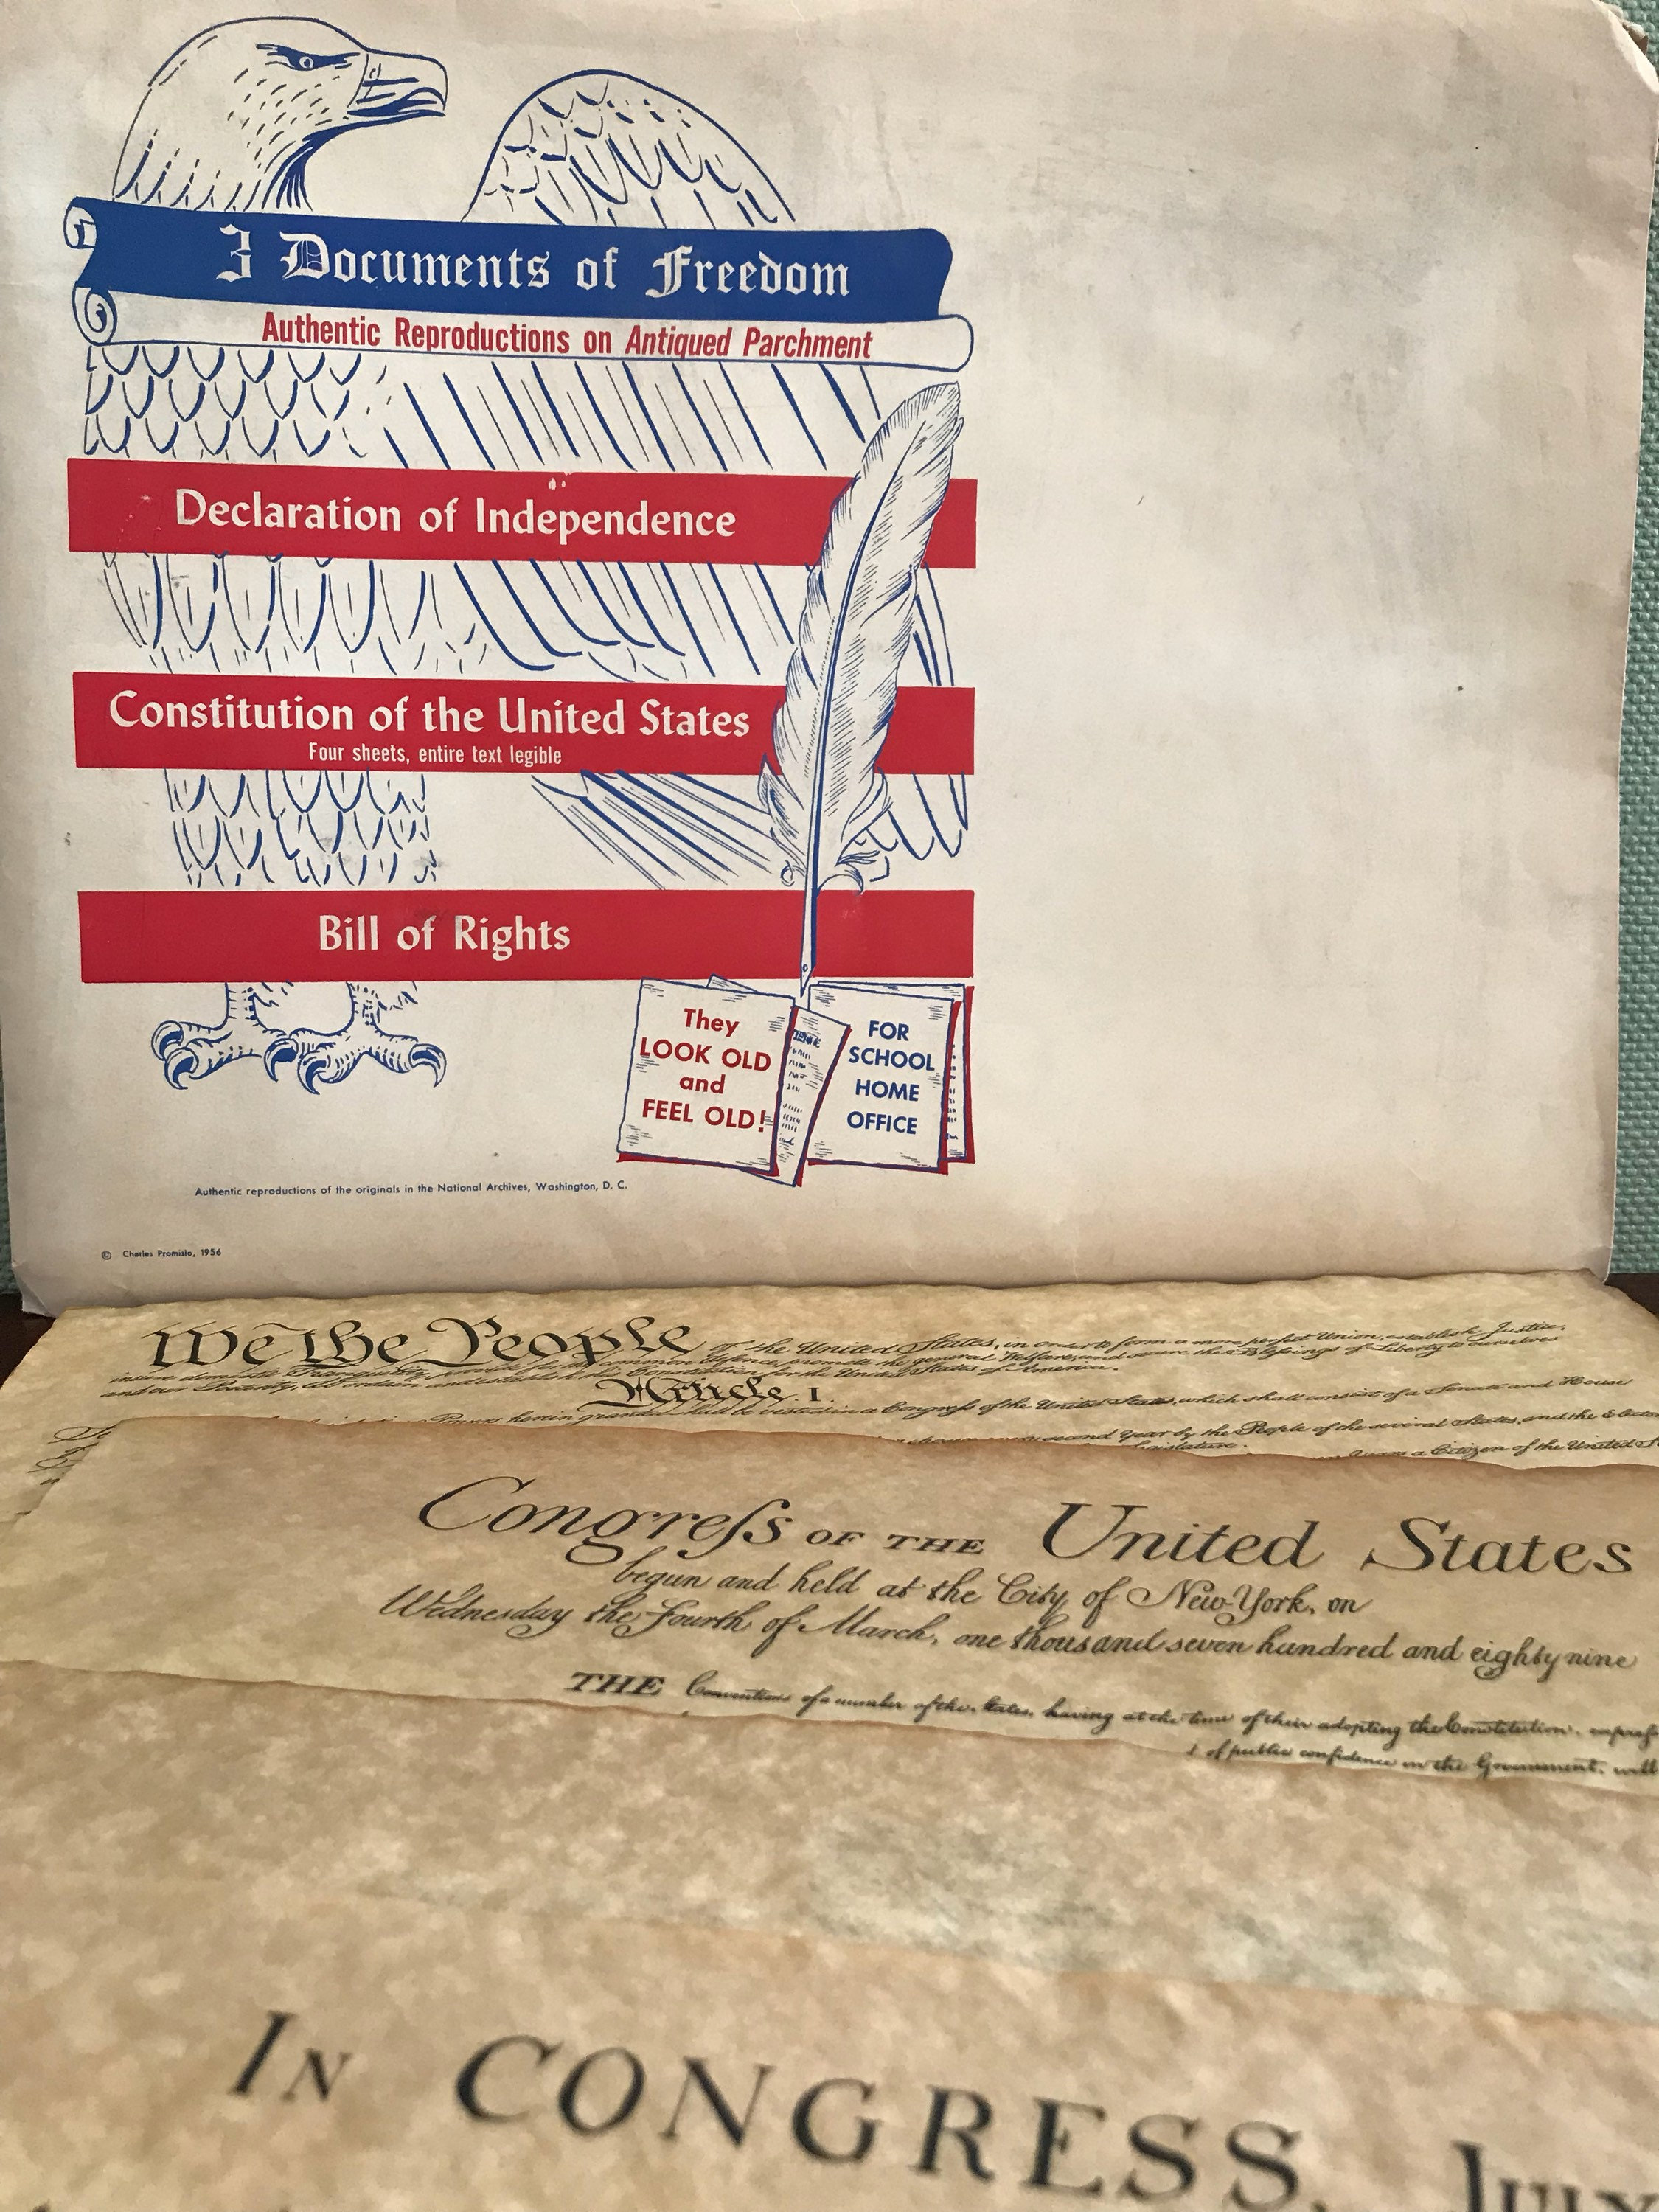 3 Documents of Freedom
Authentic Reproductions on Antiqued Parchment
Declaration of Independence
Constitution of the United States
Four sheets, entire text legible
Bill of Rights
They
LOOK OLD
and
FEEL OLD!
FOR
SCHOOL
HOME
OFFICE
Authentic reproductions of the originals in the National Archives, Washington, D. C.
© Charles Promislo, 1956
We the People of the United States, in order to form a more perfect Union, establish Justice,
insure domestic Tranquility, provide for the common defence, promote the general Welfare, and secure the Blessings of Liberty to ourselves
and our Posterity, do ordain and establish this Constitution for the United States of America.
Article. I.
herein granted shall be vested in a Congress of the United States, which shall consist of a Senate and House
second Year by the People of the several States, and the
Legislature.
a Citizen of the United
Congreſs OF THE United States
begun and held at the City of New-York, on
Wednesday the Fourth of March, one thousand seven hundred and eighty nine
THE Conventions of a number of the States, having at the time of their adopting the Constitution,
of public confidence in the Government, will
IN CONGRESS, JULY